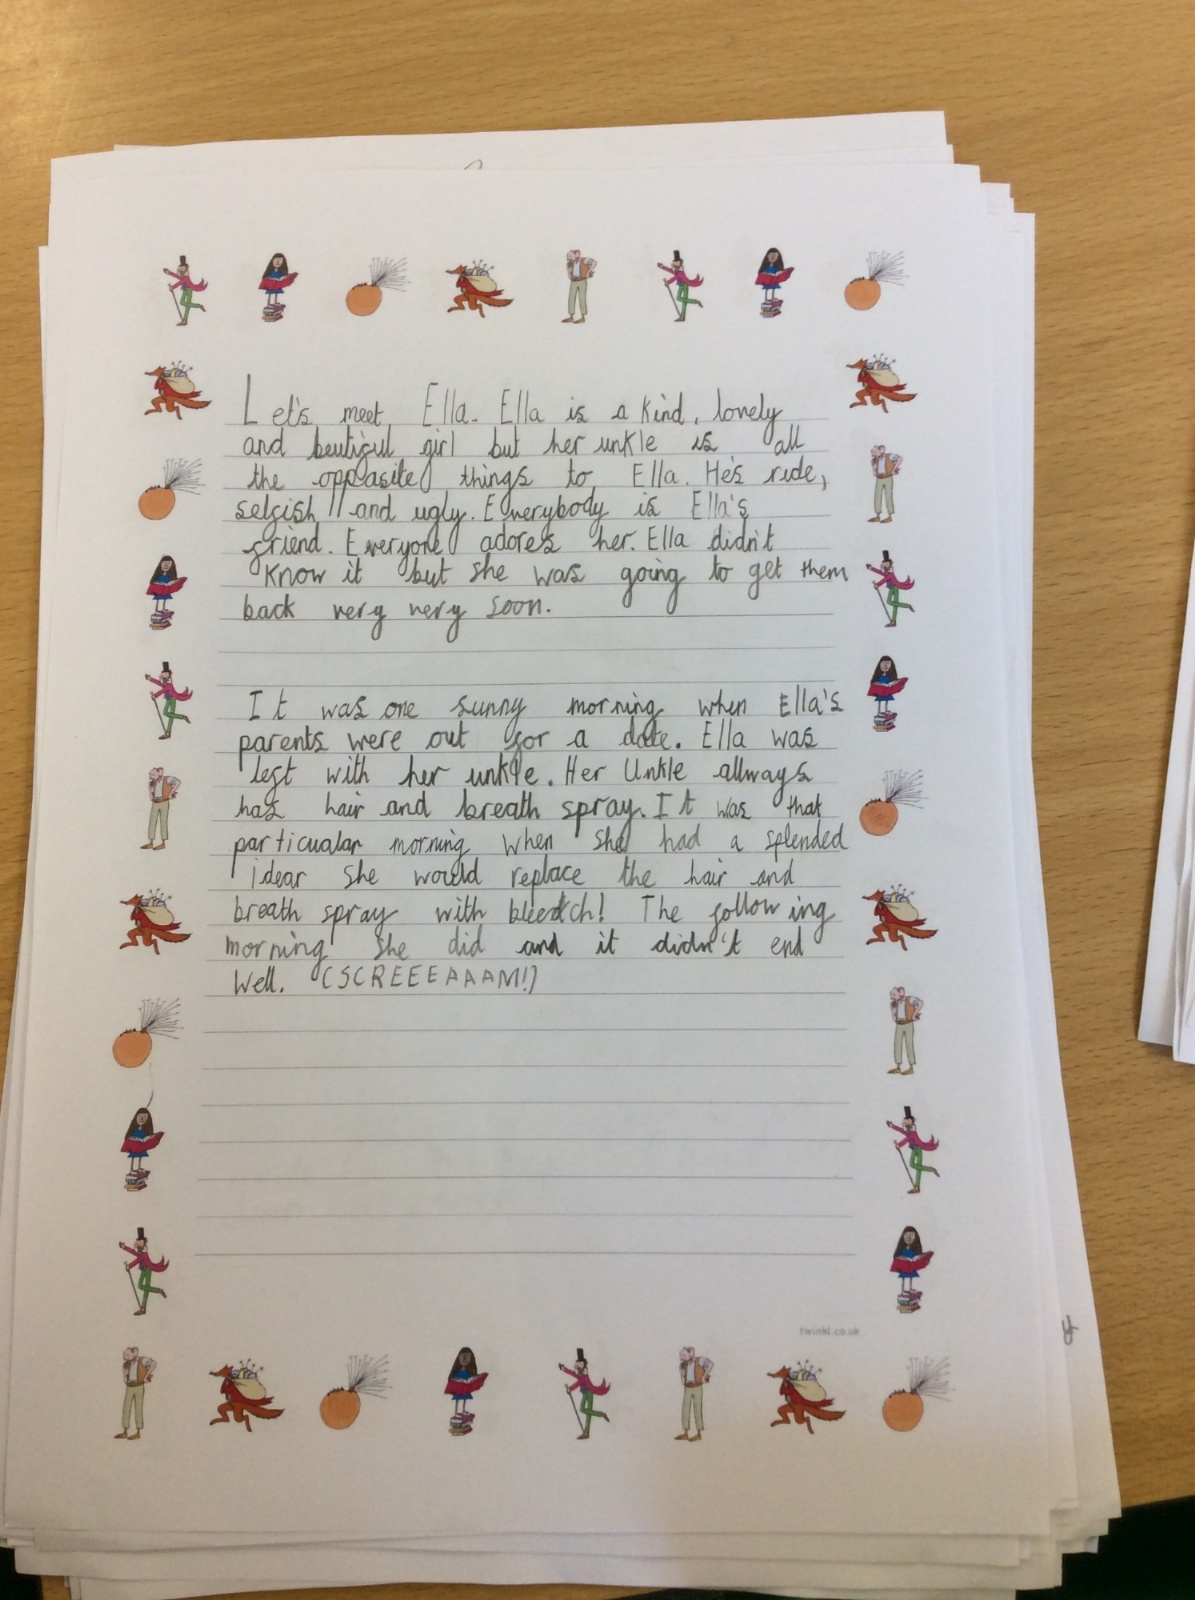 Let's meet Ella. Ella is a kind, lovely
and beutiful girl but her unkle is all
the oppasite things to Ella. He's ride,
selfish and ugly. Everybody is Ella's
friend. Everyone adores her. Ella didn't
know it but she was going to get them
back very very soon.
It was one sunny morning when Ella's
parents were out for a date. Ella was
left with her unkle. Her Unkle allways
has hair and breath spray. It was that
particualar morning when she had a splended
idear she would replace the hair and
breath spray with bleetch! The following
morning she did and it didn't end
well. (SCREEEAAAM!)
twinkl.co.uk